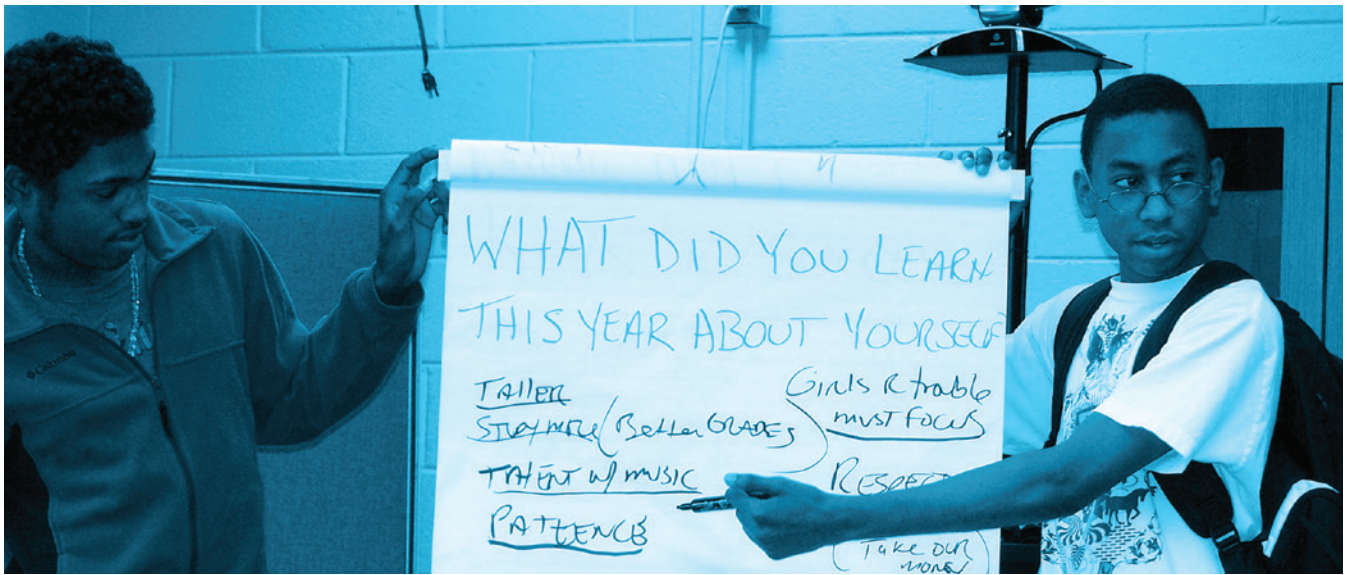 WHAT DID YOU LEARN
THIS YEAR ABOUT YOURSELF
TALLER
STUDY MORE (Better GRADES)
TALENT W/ MUSIC
PATIENCE
Girls R trouble
MUST FOCUS
RESPECT
(Take our
money)
Columbia